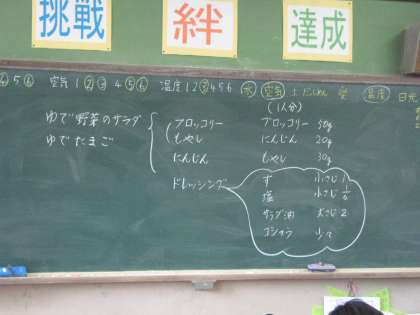 挑戦
絆
達成
④ 5 ⑥ 空気 1 ② ③ 4 ⑤ ⑥ 温度 1 2 ③ 4 5 6 水 空気 温度
(1人分)
ゆで野菜のサラダ
ゆでたまご
ブロッコリー
もやし
にんじん
ドレッシング
ブロッコリー 50g
にんじん 20g
もやし 30g
す 小さじ 1
塩 小さじ 1/6
サラダ油 大さじ 2
コショウ 少々